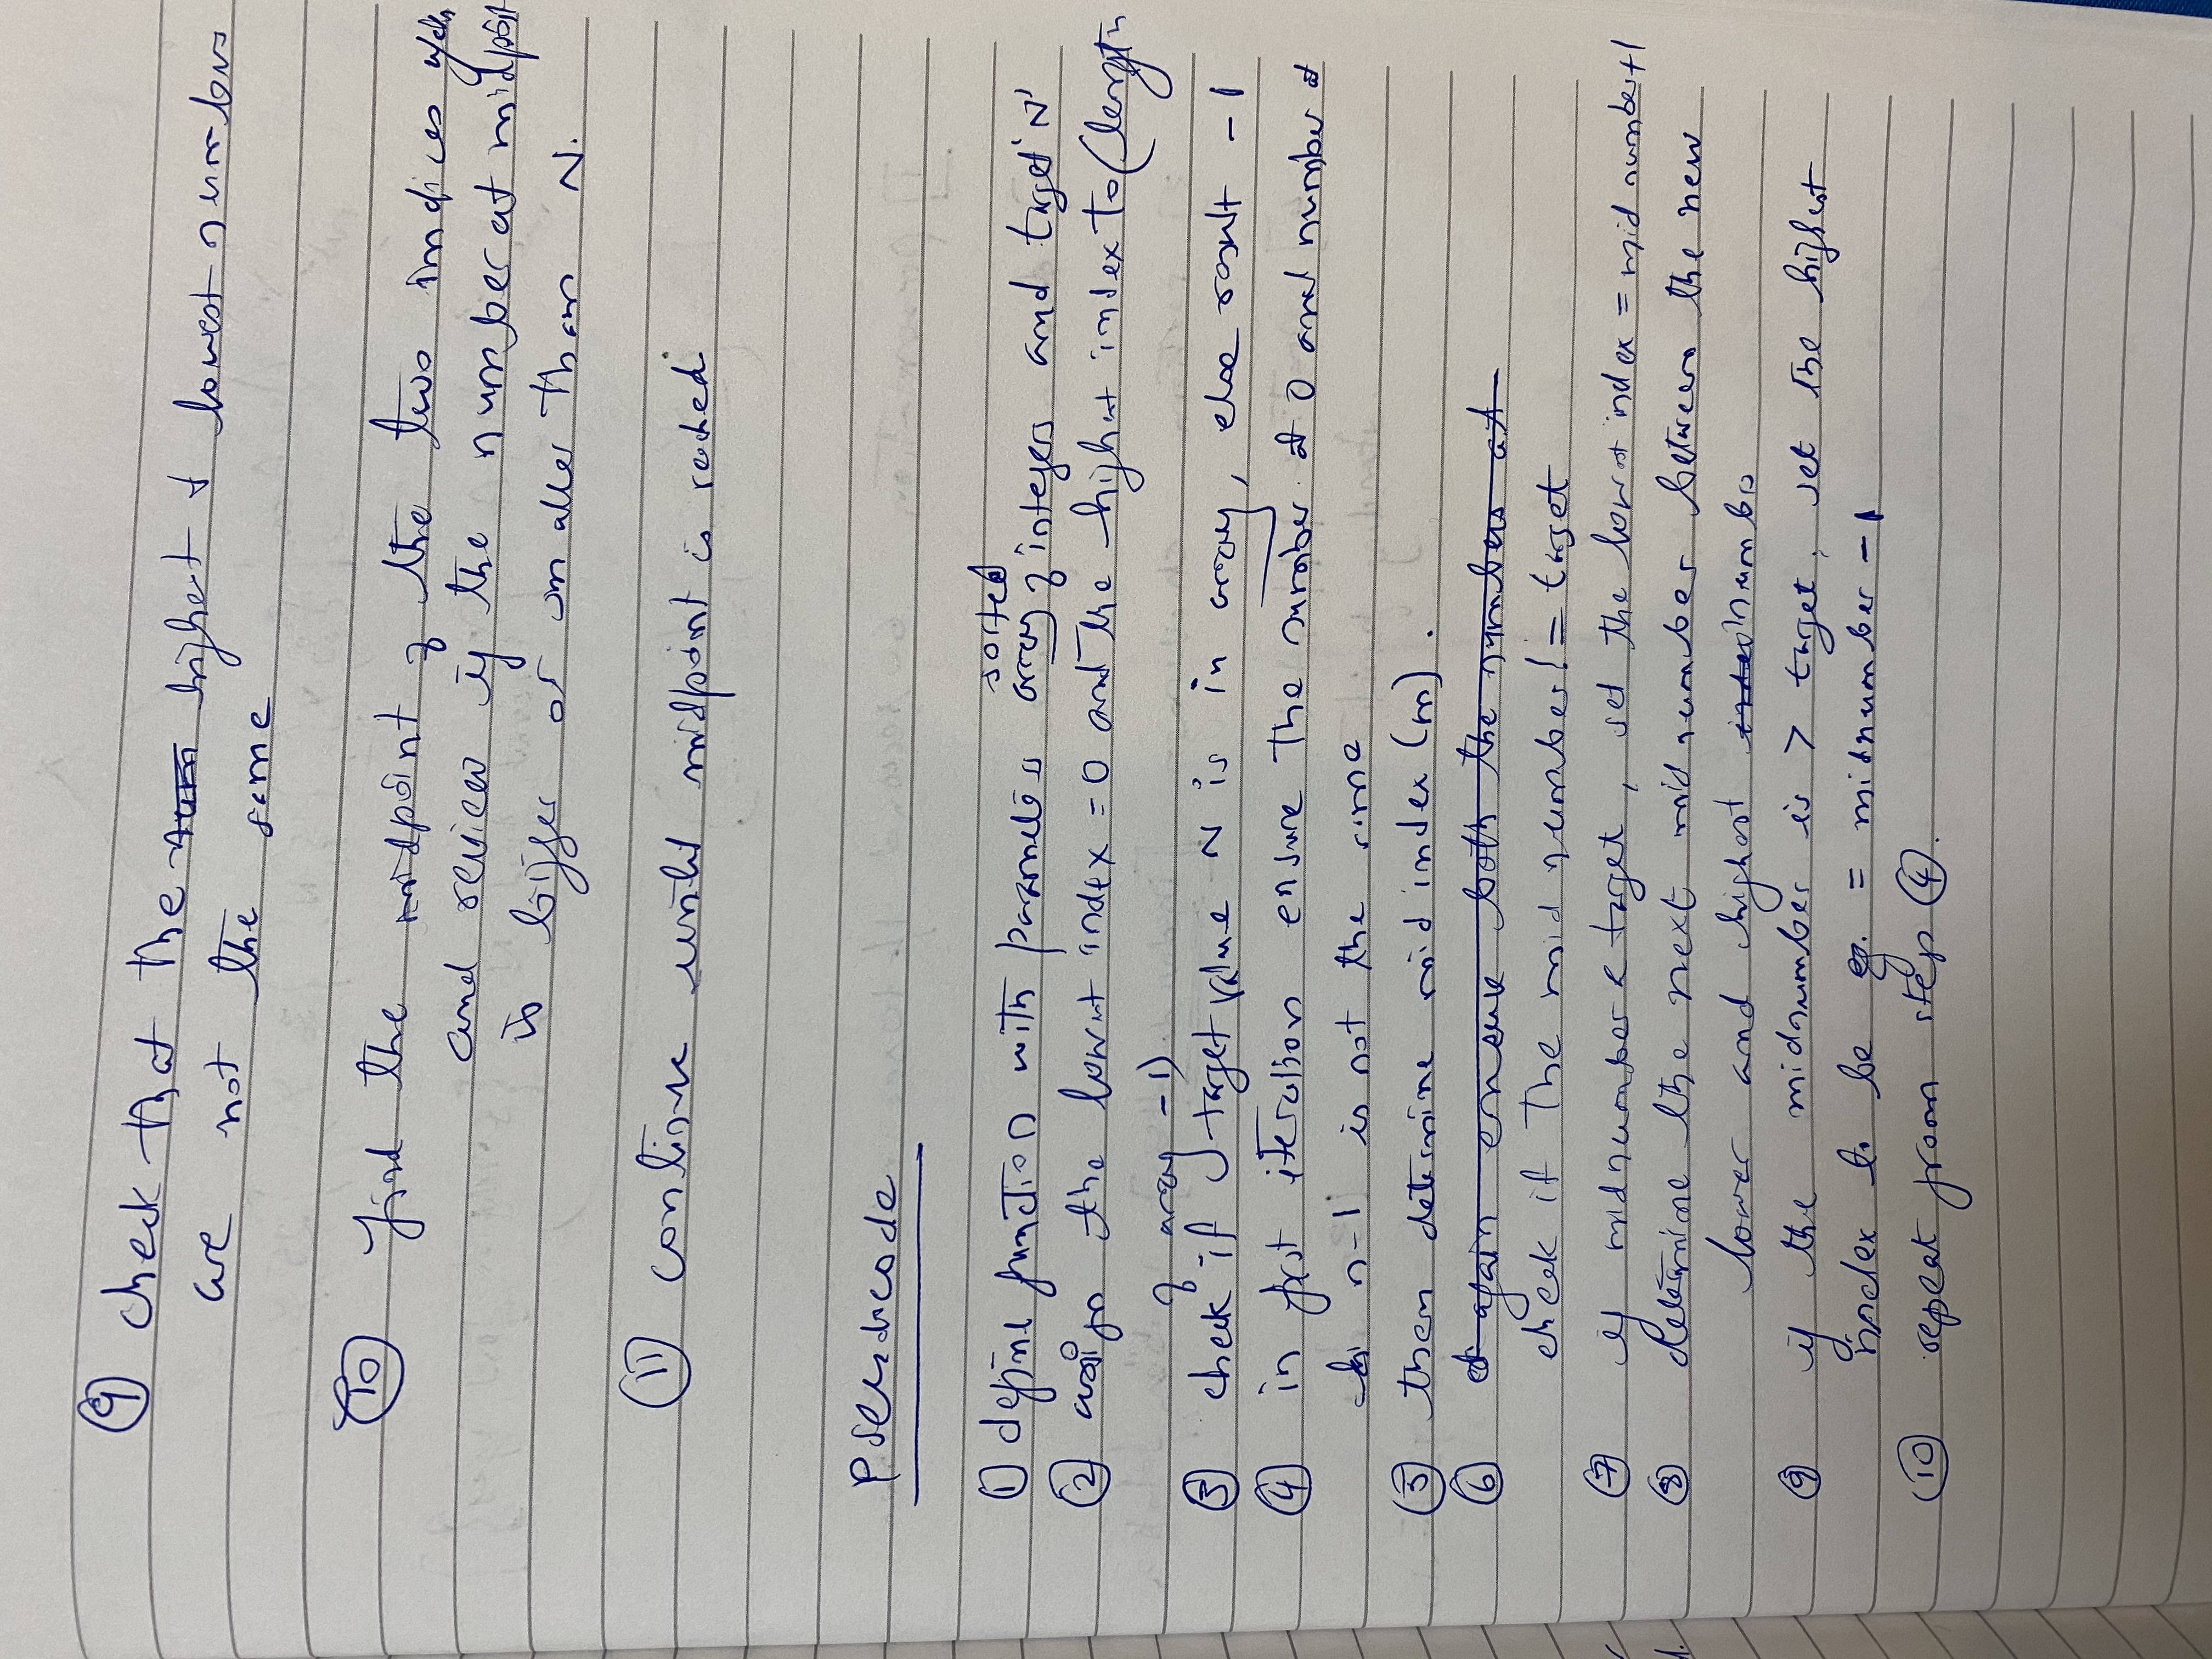 ⑨ check that the num highest & lowest numbers
are not the same
⑩ find the midpoint of the two indices again
and review if the number at midpoint
is bigger or smaller than N.
⑪ continue until midpoint is reached
Pseudocode
① define function with parameters sorted array of integers and target 'N'
② assign the lowest index = 0 and the highest index to (length
of array - 1)
③ check if target value N is in array, else result - 1
④ in first iteration ensure the number at 0 and number at
n-1 is not the same
⑤ then determine mid index (m).
⑥ again ensure both the numbers at
check if the mid number != target
⑦ if midnumber < target, set the lowest index = mid number+1
⑧ determine the next mid number between the new
lower and highest index numbers
⑨ if the midnumber is > target, set the highest
index to be = midnumber - 1
⑩ repeat from step ④.